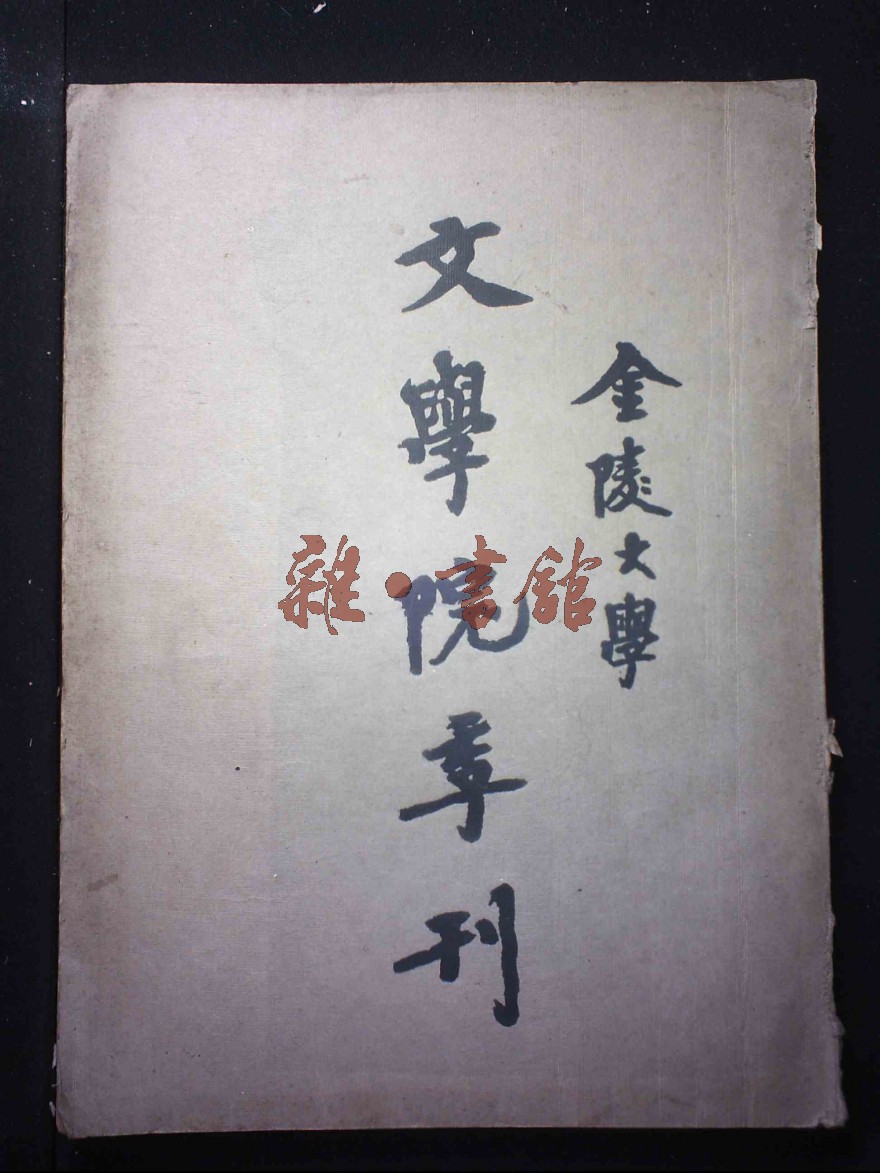 金陵大學
文學院季刊
雜·書館